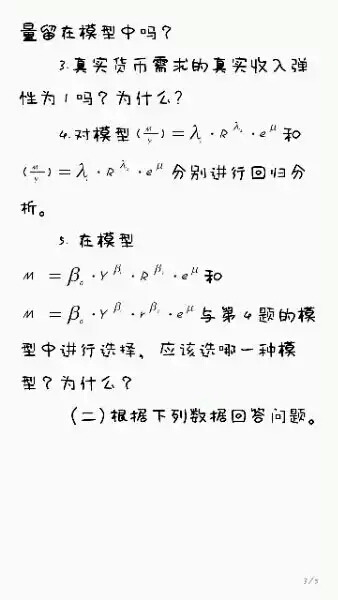 量留在模型中吗？
3.真实货币需求的真实收入弹
性为1吗？为什么？
4.对模型(M/Y)=λ₁·R^λ₂·e^μ和
(M/Y)=λ₁·R^λ₂·e^μ分别进行回归分
析。
5.在模型
M=β₀·Y^β₁·R^β₂·e^μ和
M=β₀·Y^β₁·r^β₂·e^μ与第4题的模
型中进行选择，应该选哪一种模
型？为什么？
(二)根据下列数据回答问题。
3/5